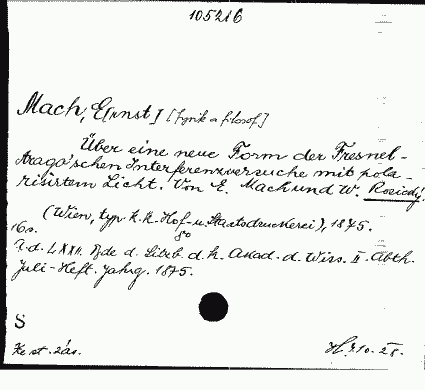 105216
Mach, E[rnst] [fysik a filosof]
Über eine neue Form der Fresnel-
Arago'schen Interferenzversuche mit pola-
risirtem Licht. Von E. Mach und W. Rosický.
(Wien, typ. k. k. Hof- u. Staatsdruckerei), 1875.
16 s. 8°
A. d. LXXII. Bde d. Sitzb. d. k. Akad. d. Wiss. II. Abth.
Juli-Heft. Jahrg. 1875.
S
28.